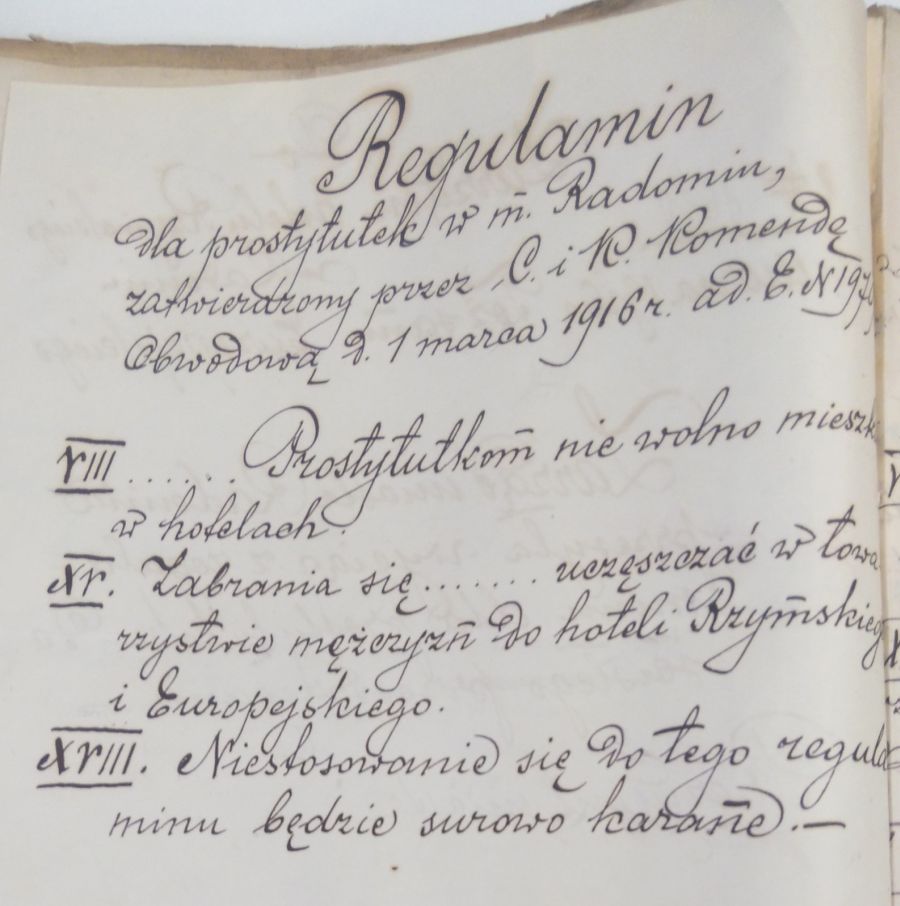 Regulamin
dla prostytutek w m. Radomiu,
zatwierdzony przez C. i K. Komendę
Obwodową d. 1 marca 1916 r. ad. E. N 197
VIII ...... Prostytutkom nie wolno mieszk
w hotelach.
XV. Zabrania się ....... uczęszczać w towa
rzystwie mężczyzn do hoteli Rzymskieg
i Europejskiego.
XVIII. Niestosowanie się do tego regula
minu będzie surowo karane.—